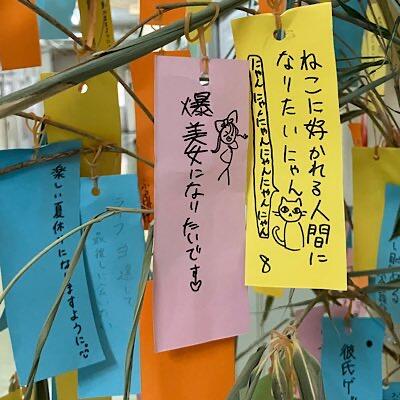 ねこに好かれる人間に
なりたいにゃん
にゃんにゃんにゃんにゃんにゃんにゃん
8
爆美女になりたいです♡
楽しい夏休みになりますように。
彼氏ゲ